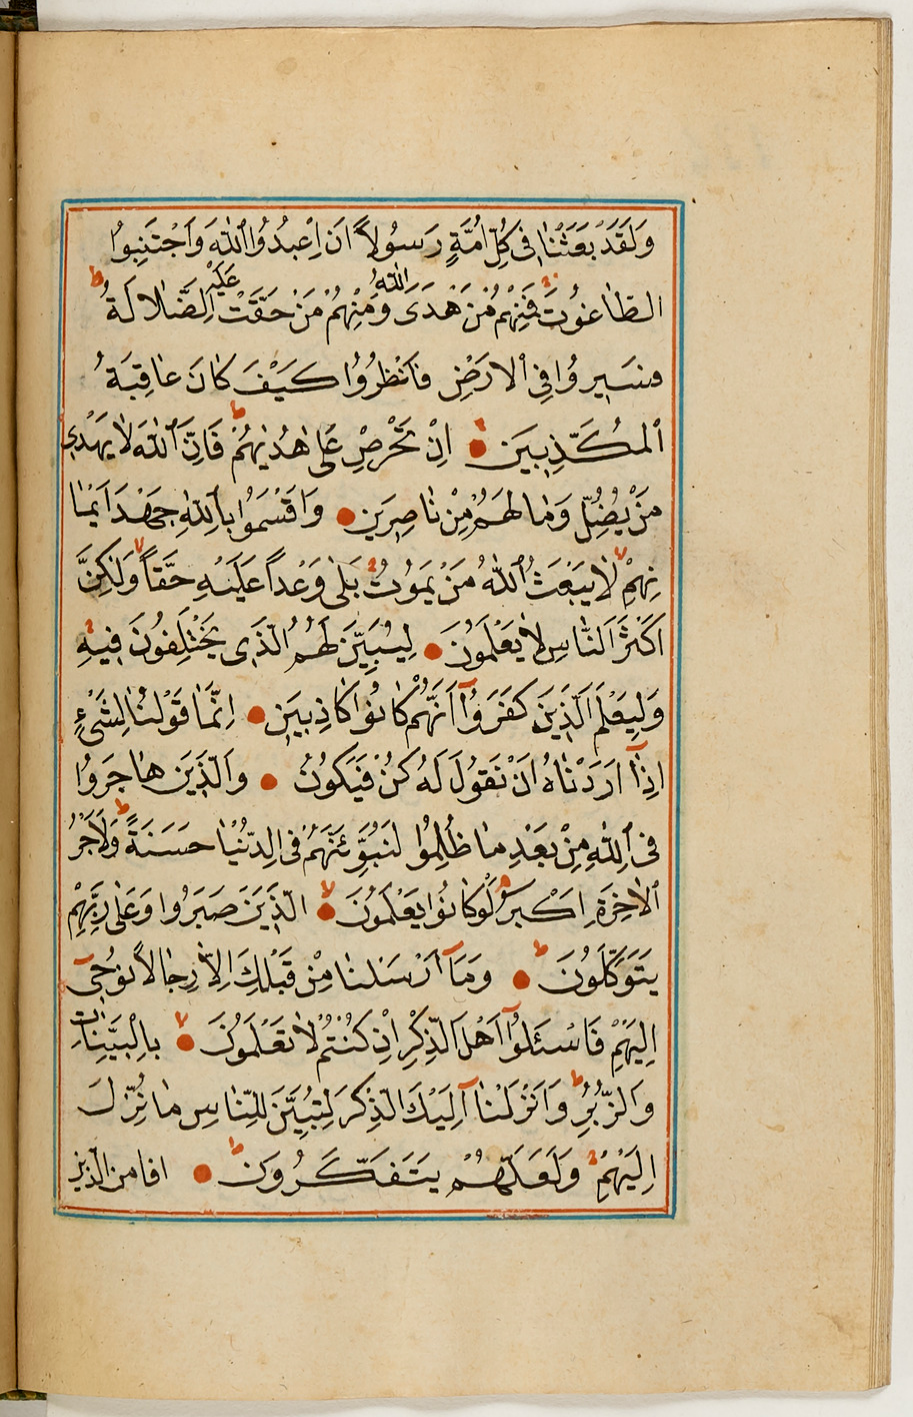 وَلَقَدْ بَعَثْنَا فِى كُلِّ اُمَّةٍ رَسُولاً اَنِ اعْبُدُوا اللّٰهَ وَاجْتَنِبُوا
الطَّاغُوتَ فَمِنْهُمْ مَنْ هَدَى اللّٰهُ وَمِنْهُمْ مَنْ حَقَّتْ عَلَيْهِ الضَّلَالَةُ
فَسِيرُوا فِى الْاَرْضِ فَانْظُرُوا كَيْفَ كَانَ عَاقِبَةُ
الْمُكَذِّبِينَ اِنْ تَحْرِصْ عَلٰى هُدٰيهُمْ فَاِنَّ اللّٰهَ لَا يَهْدِى
مَنْ يُضِلُّ وَمَا لَهُمْ مِنْ نَاصِرِينَ وَاَقْسَمُوا بِاللّٰهِ جَهْدَ اَيْمَا
نِهِمْ لَا يَبْعَثُ اللّٰهُ مَنْ يَمُوتُ بَلٰى وَعْداً عَلَيْهِ حَقّاً وَلٰكِنَّ
اَكْثَرَ النَّاسِ لَا يَعْلَمُونَ لِيُبَيِّنَ لَهُمُ الَّذِى يَخْتَلِفُونَ فِيهِ
وَلِيَعْلَمَ الَّذِينَ كَفَرُوا اَنَّهُمْ كَانُوا كَاذِبِينَ اِنَّمَا قَوْلُنَا لِشَىْءٍ
اِذَا اَرَدْنَاهُ اَنْ نَقُولَ لَهُ كُنْ فَيَكُونُ وَالَّذِينَ هَاجَرُوا
فِى اللّٰهِ مِنْ بَعْدِ مَا ظُلِمُوا لَنُبَوِّئَنَّهُمْ فِى الدُّنْيَا حَسَنَةً وَلَاَجْرُ
الْاٰخِرَةِ اَكْبَرُ لَوْ كَانُوا يَعْلَمُونَ الَّذِينَ صَبَرُوا وَعَلٰى رَبِّهِمْ
يَتَوَكَّلُونَ وَمَا اَرْسَلْنَا مِنْ قَبْلِكَ اِلَّا رِجَالاً نُوحِى
اِلَيْهِمْ فَاسْئَلُوا اَهْلَ الذِّكْرِ اِنْ كُنْتُمْ لَا تَعْلَمُونَ بِالْبَيِّنَاتِ
وَالزُّبُرِ وَاَنْزَلْنَا اِلَيْكَ الذِّكْرَ لِتُبَيِّنَ لِلنَّاسِ مَا نُزِّلَ
اِلَيْهِمْ وَلَعَلَّهُمْ يَتَفَكَّرُونَ افامن الذين